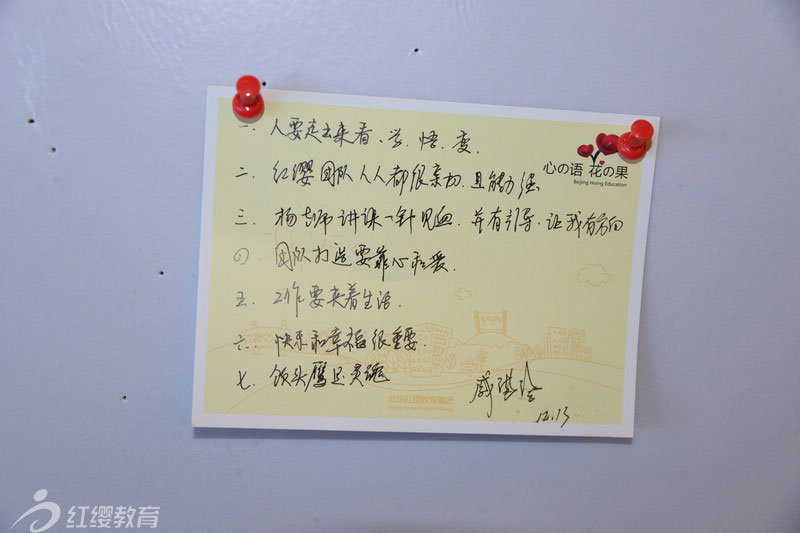 心の语 花の果
Beijing Hoing Education
一. 人要走出来看、学、悟、变.
二. 红缨团队人人都很亲切,且能力强
三. 杨老师讲课一针见血.并有引导.让我有方向
四. 团队打造要靠心和爱.
五. 工作要夹着生活.
六. 快乐和幸福很重要.
七. 领头雁是灵魂
12.13
北京红缨教育集团
Beijing Hoing Education Group
红缨教育